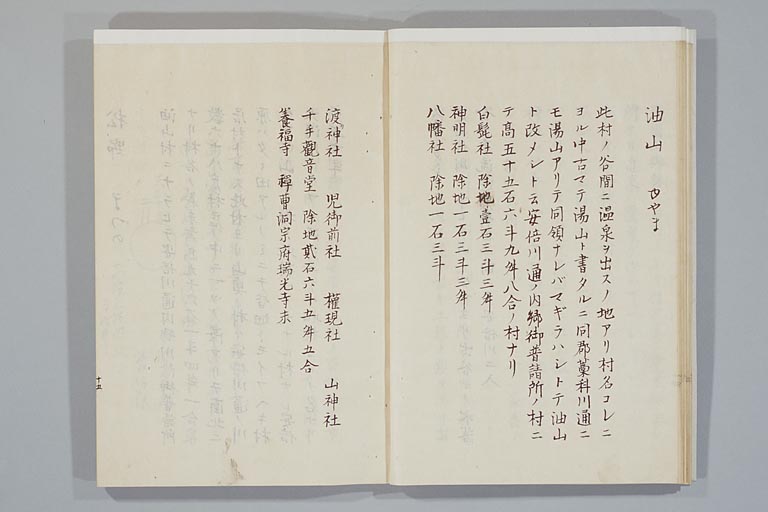 油山 ゆやま
此村ノ谷間ニ温泉ヲ出スノ地アリ村名コレニ
ヨル中古マテ湯山ト書タルニ同郡藁科川通ニ
モ湯山アリテ同領ナレバマギラハシトテ油山
ト改メシト云安倍川通ノ内郷御普請所ノ村ニ
テ高五十五石六斗九舛八合ノ村ナリ
白髭社 除地壹石三斗三舛
神明社 除地一石三斗三舛
八幡社 除地一石三斗
渡神社 児御前社 權現社 山神社
千手觀音堂 除地貳石六斗五舛五合
養福寺 禪曹洞宗府瑞光寺末
十五